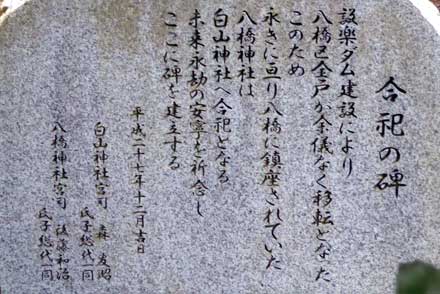 合祀の碑
設楽ダム建設により
八橋区全戸が余儀なく移転となった
このため
永きに亘り八橋に鎮座されていた
八橋神社は
白山神社へ合祀となる
未来永劫の安寧を祈念し
ここに碑を建立する
平成二十七年十二月吉日
白山神社宮司 森
氏子総代一同
八橋神社宮司 後藤和治
氏子総代一同